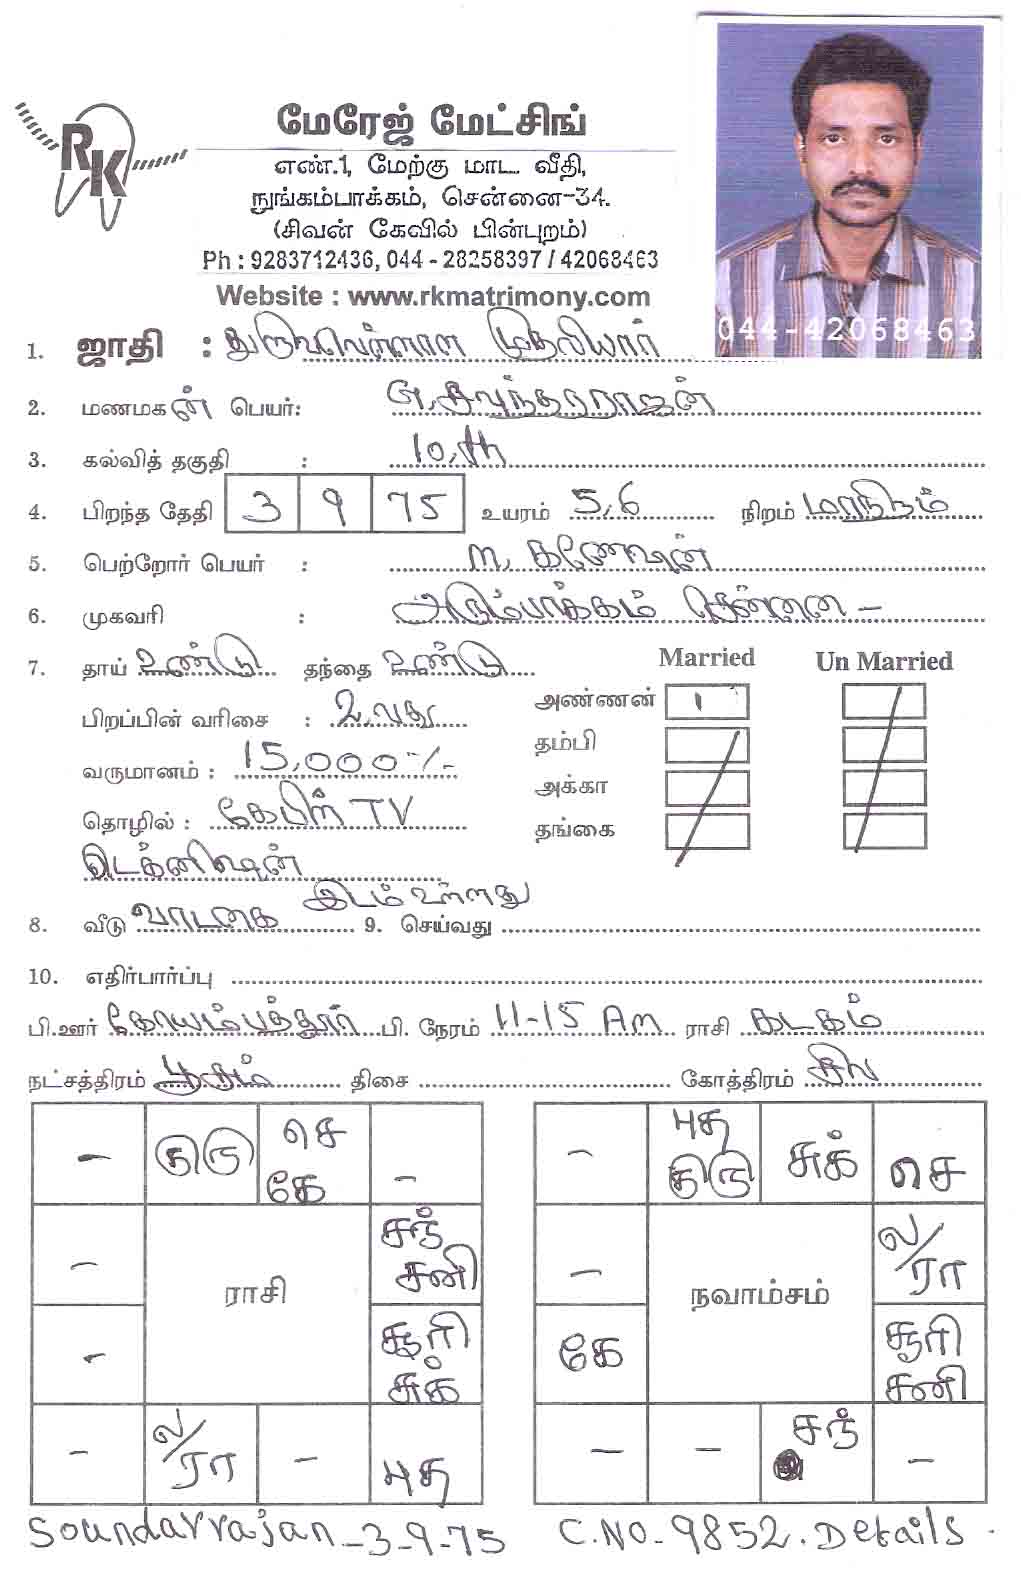 RK
மேரேஜ் மேட்சிங்
எண்.1, மேற்கு மாட வீதி,
நுங்கம்பாக்கம், சென்னை-34.
(சிவன் கேவில் பின்புறம்)
Ph : 9283712436, 044 - 28258397 / 42068463
Website : www.rkmatrimony.com
044-42068463
1. ஜாதி : முதலியார்
2. மணமகன் பெயர்: சவுந்தரராஜன்
3. கல்வித் தகுதி : 10,th
4. பிறந்த தேதி 3 9 75 உயரம் 5,6 நிறம் மாநிறம்
5. பெற்றோர் பெயர் : M. கணேஷன்
6. முகவரி : அரும்பாக்கம் சென்னை -
7. தாய் உண்டு தந்தை உண்டு Married Un Married
பிறப்பின் வரிசை : 2வது அண்ணன் 1
தம்பி
வருமானம் : 15,000-/- அக்கா
தொழில் : கேபிள் TV தங்கை
டெக்னிஷன்
இடம் உள்ளது
8. வீடு வாடகை 9. செய்வது
10. எதிர்பார்ப்பு
பி.ஊர் கோயம்பத்தூர் பி. நேரம் 11-15 AM ராசி கடகம்
நட்சத்திரம் பூசம் திசை கோத்திரம் சிவ
- குரு செ கே -
- சந் சனி
ராசி
- சூரி சுக்
- ல/ரா - புத
- புத குரு சுக் செ
- ல/ரா
நவாம்சம்
கே சூரி சனி
- - சந் -
Soundarrajan-3-9-75 C.NO-9852. Details.